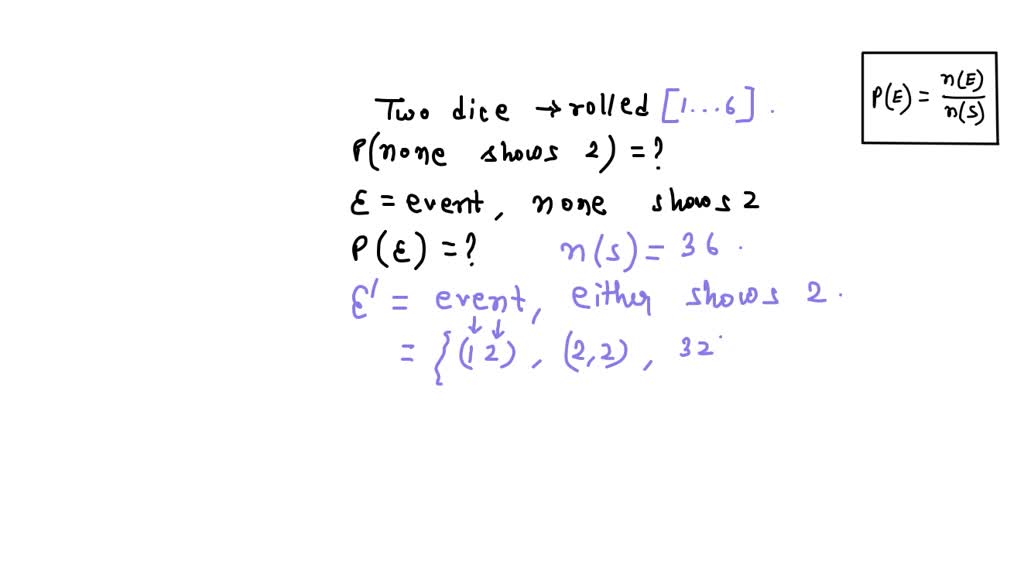 Two dice → rolled [1...6].
P(none shows 2) = ?
ε = event, none shows 2
P(ε) = ? n(s) = 36.
ε' = event, either shows 2.
= {(1 2), (2,2), 32
P(E) = n(E)/n(S)